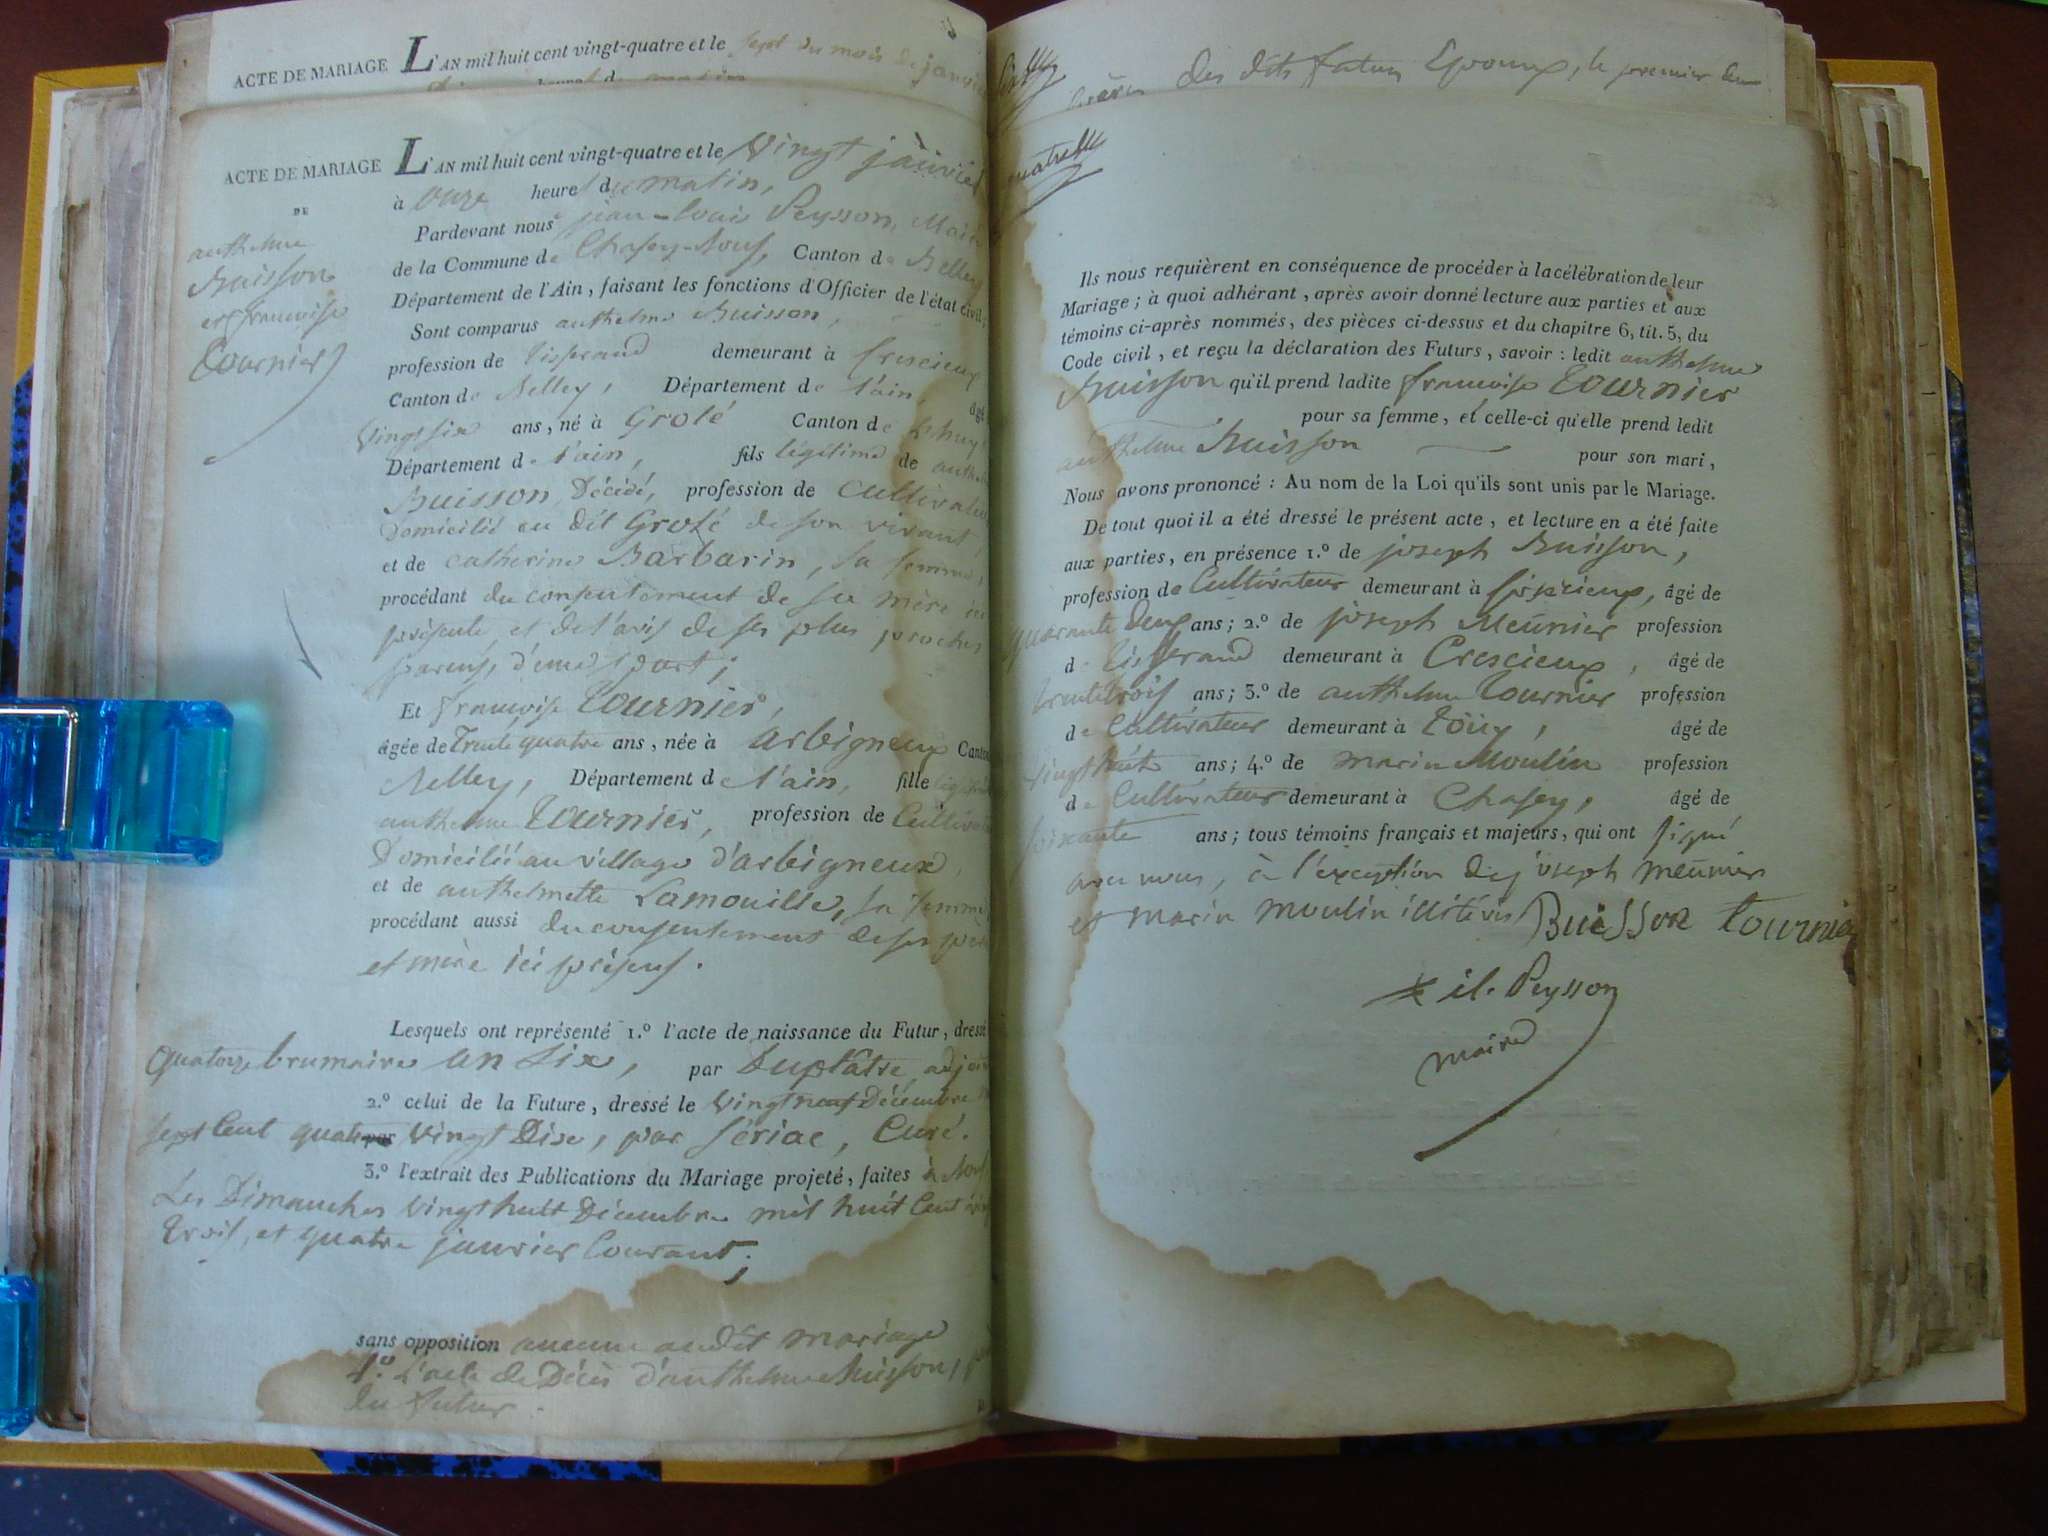 ACTE DE MARIAGE L'AN mil huit cent vingt-quatre et le sept du mois de janvier
ACTE DE MARIAGE L'AN mil huit cent vingt-quatre et le vingt janvier
DE
anthelme
Buisson
et francoise
Tournier
à onze heures du matin,
Pardevant nous jean-louis Peysson, Maire
de la Commune de Chasey-Nouf, Canton de Belley
Département de l'Ain, faisant les fonctions d'Officier de l'état civil,
Sont comparus anthelme Buisson,
profession de tisserand demeurant à Crescieux
Canton de Belley, Département de l'ain, âgé
vingt six ans, né à Grolé Canton de Lhuy,
Département de l'ain, fils légitime de anthelme
Buisson, décédé, profession de cultivateur
Domicilié au dit Grolé de son vivant
et de catherine Barbarin, sa femme,
procédant du consentement de sa mère ici
présente, et de l'avis de ses plus proches
parens, d'une part;
Et francoise Tournier,
âgée de Trente quatre ans, née à arbigneux Canton
Belley, Département de l'ain, fille légitime
anthelme Tournier, profession de Cultivateur
Domicilié au village d'arbigneux,
et de anthelmette Lamouille, sa femme
procédant aussi du consentement de ses père
et mère ici présens.
Lesquels ont représenté 1.º l'acte de naissance du Futur, dressé
quatorze brumaire an six, par Duplatre, adjoint
2.º celui de la Future, dressé le vingt neuf Décembre
sept Cent quatre vingt Dix, par Sériac, Curé.
3.º l'extrait des Publications du Mariage projeté, faites à Nouf
Les Dimanches vingt huit Décembre mil huit Cent vingt
trois, et quatre janvier Courant;
sans opposition aucune audit mariage
4.º L'acte de Décès d'anthelme Buisson,
du futur.
des dits futurs Epoux, le premier de
quatre
Ils nous requièrent en conséquence de procéder à la célébration de leur
Mariage; à quoi adhérant, après avoir donné lecture aux parties et aux
témoins ci-après nommés, des pièces ci-dessus et du chapitre 6, tit. 5, du
Code civil, et reçu la déclaration des Futurs, savoir: ledit anthelme
Buisson qu'il prend ladite francoise Tournier
pour sa femme, et celle-ci qu'elle prend ledit
anthelme Buisson pour son mari,
Nous avons prononcé: Au nom de la Loi qu'ils sont unis par le Mariage.
De tout quoi il a été dressé le présent acte, et lecture en a été faite
aux parties, en présence 1.º de joseph Buisson,
profession de Cultivateur demeurant à âgé de
quarante Deux ans; 2.º de joseph Meunier profession
de tisserand demeurant à Crescieux, âgé de
trente trois ans; 3.º de anthelme Tournier profession
de Cultivateur demeurant à âgé de
vingt huit ans; 4.º de marin Moulin profession
de Cultivateur demeurant à Chasey, âgé de
soixante ans; tous témoins français et majeurs, qui ont signé
avec nous, à l'exception de joseph meunier
et marin moulin illitérés Buisson tournier
Peysson
maire